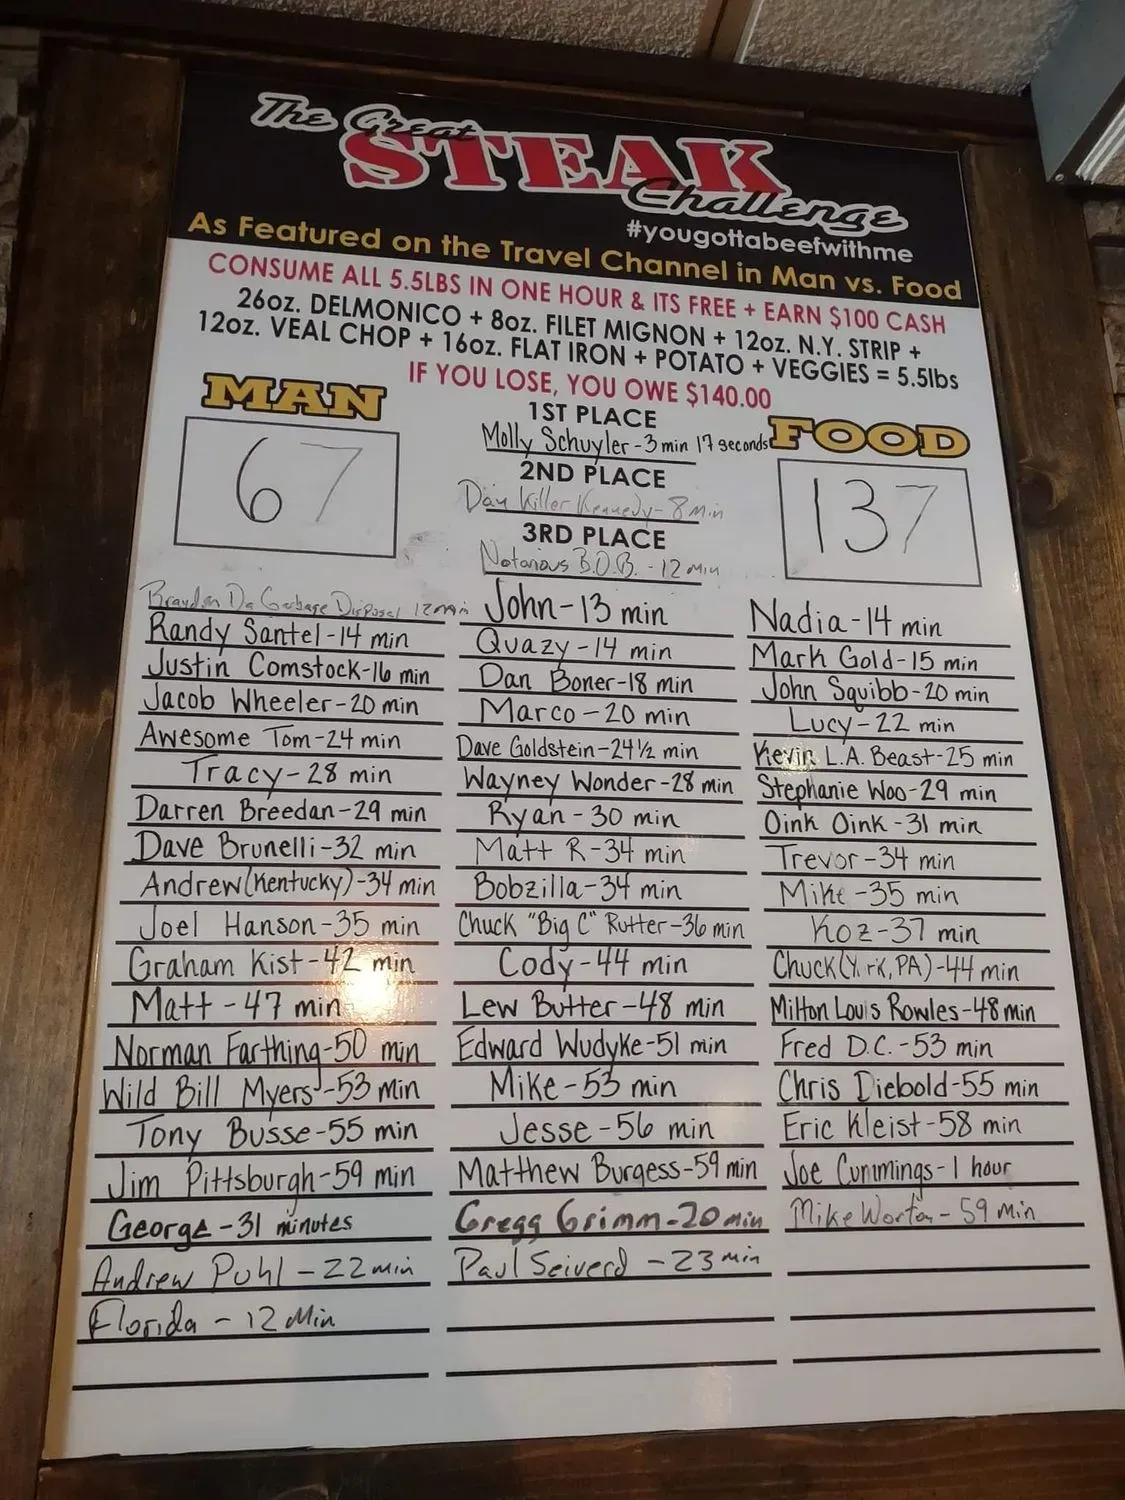 The Great
STEAK
Challenge
#yougottabeefwithme
As Featured on the Travel Channel in Man vs. Food
CONSUME ALL 5.5LBS IN ONE HOUR & ITS FREE + EARN $100 CASH
26oz. DELMONICO + 8oz. FILET MIGNON + 12oz. N.Y. STRIP +
12oz. VEAL CHOP + 16oz. FLAT IRON + POTATO + VEGGIES = 5.5lbs
IF YOU LOSE, YOU OWE $140.00
MAN
67
1ST PLACE
Molly Schuyler-3 min 17 seconds
2ND PLACE
Dan Killer Kennedy-8 Min
3RD PLACE
Notorious B.O.B. - 12 min
FOOD
137
Brandon Da Garbage Disposal 12 min
Randy Santel-14 min
Justin Comstock-16 min
Jacob Wheeler-20 min
Awesome Tom-24 min
Tracy-28 min
Darren Breedan-29 min
Dave Brunelli-32 min
Andrew(Kentucky)-34 min
Joel Hanson-35 min
Graham Kist-42 min
Matt - 47 min
Norman Farthing-50 min
Wild Bill Myers-53 min
Tony Busse-55 min
Jim Pittsburgh-59 min
George -31 minutes
Andrew Puhl - 22 min
Florida - 12 Min
John-13 min
Quazy-14 min
Dan Boner-18 min
Marco-20 min
Dave Goldstein-24½ min
Wayney Wonder-28 min
Ryan-30 min
Matt R-34 min
Bobzilla-34 min
Chuck "Big C" Rutter-36 min
Cody-44 min
Lew Butter-48 min
Edward Wudyke-51 min
Mike-53 min
Jesse-56 min
Matthew Burgess-59 min
Gregg Grimm-20 min
Paul Seiverd - 23 min
Nadia-14 min
Mark Gold-15 min
John Squibb-20 min
Lucy-22 min
Kevin L.A. Beast-25 min
Stephanie Woo-29 min
Oink Oink-31 min
Trevor-34 min
Mike-35 min
Koz-37 min
Chuck(York, PA)-44 min
Milton Louis Rowles-48 min
Fred D.C.-53 min
Chris Diebold-55 min
Eric Kleist-58 min
Joe Cummings-1 hour
Mike Worton - 59 min